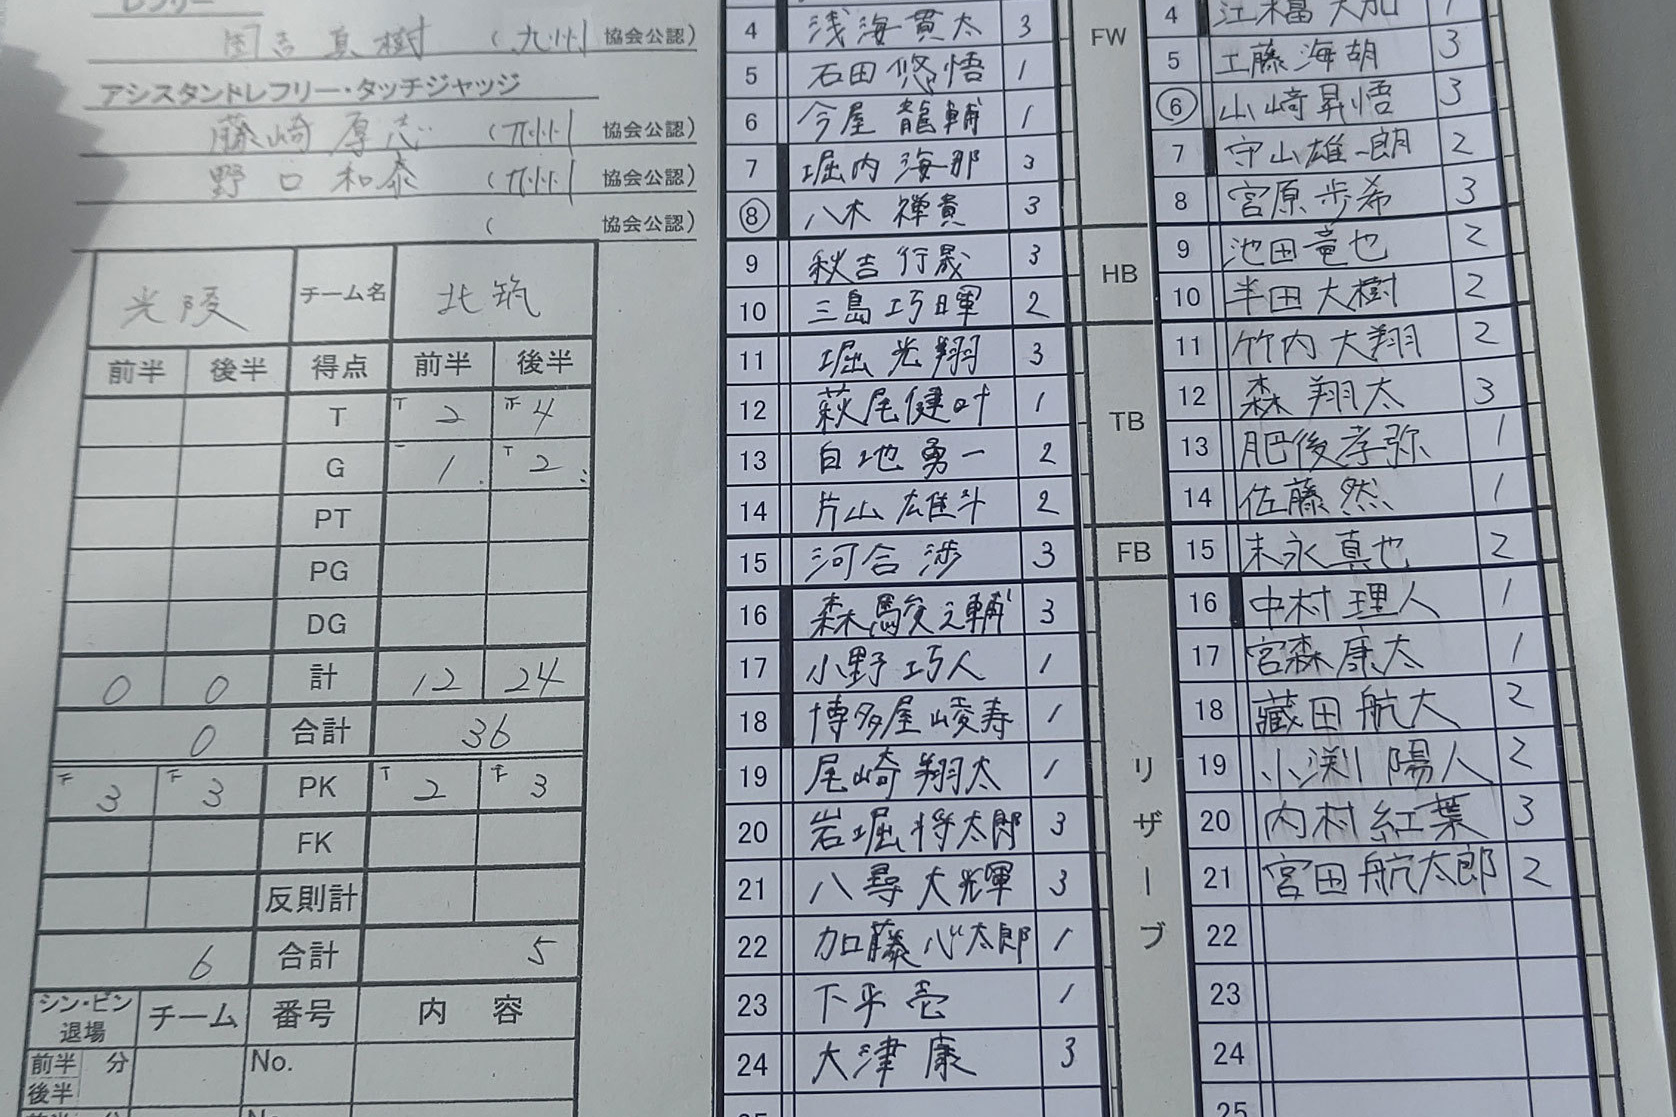 レフリー
国吉真樹 (九州 協会公認)
アシスタントレフリー・タッチジャッジ
藤崎厚志 (九州 協会公認)
野口和泰 (九州 協会公認)
( 協会公認)
光陵 チーム名 北筑
前半 後半 得点 前半 後半
T T 2 正 4
G 1 T 2
PT
PG
DG
0 0 計 12 24
0 合計 36
3 3 PK T 2 3
FK
反則計
6 合計 5
シン・ビン 退場 チーム 番号 内容
前半 分 No.
後半
4 浅海貫太 3
5 石田悠悟 1
6 今屋龍輔 1
7 堀内海那 3
8 八木禅貴 3
9 秋吉行晟 3
10 三島巧暉 2
11 堀光翔 3
12 萩尾健叶 1
13 白地勇一 2
14 片山雄斗 2
15 河合渉 3
16 森駿之輔 3
17 小野巧人 1
18 博多屋崚寿 1
19 尾崎翔太 1
20 岩堀将太郎 3
21 八尋大輝 3
22 加藤心太郎 1
23 下平壱 1
24 大津康 3
FW
HB
TB
FB
リザーブ
4 1
5 工藤海胡 3
6 山崎昇悟 3
7 守山雄一朗 2
8 宮原歩希 3
9 池田竜也 2
10 半田大樹 2
11 竹内大翔 2
12 森翔太 3
13 肥後孝弥 1
14 佐藤然 1
15 末永真也 2
16 中村理人 1
17 宮森康太 1
18 藏田航大 2
19 小渕陽人 2
20 内村紅葉 3
21 宮田航太郎 2
22
23
24
25